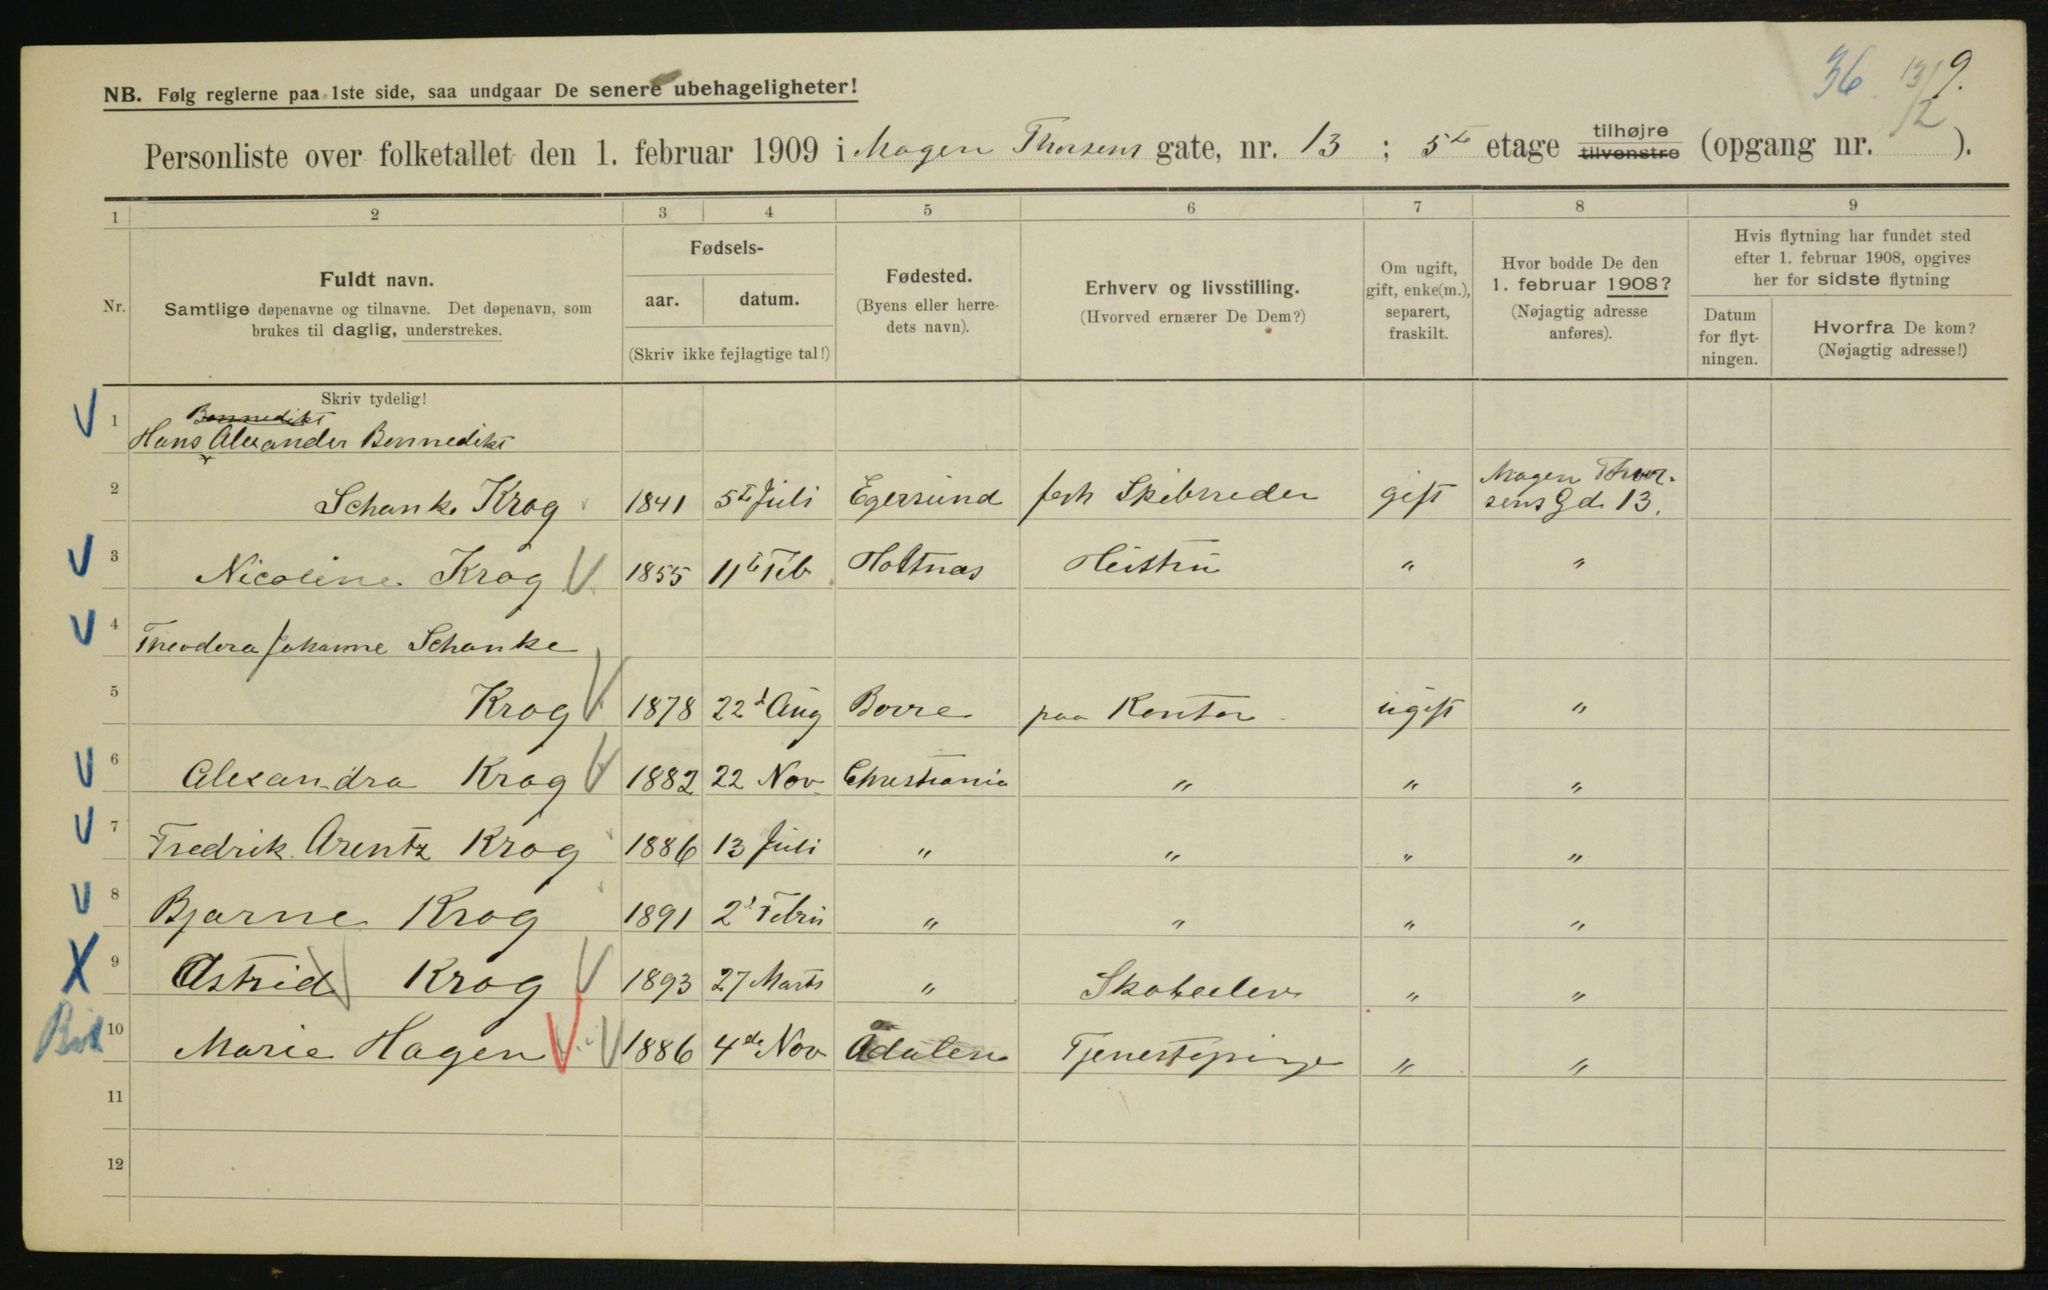 36 13/2 9.
NB. Følg reglerne paa 1ste side, saa undgaar De senere ubehageligheter!
Personliste over folketallet den 1. februar 1909 i Mogen Thorsens gate, nr. 13 ; 5te etage tilhøjre tilvenstre (opgang nr. ).
1 2 3 4 5 6 7 8 9
Nr.
Fuldt navn.
Samtlige døpenavne og tilnavne. Det døpenavn, som
brukes til daglig, understrekes.
Fødsels-
aar. datum.
(Skriv ikke fejlagtige tal!)
Fødested.
(Byens eller herre-
dets navn).
Erhverv og livsstilling.
(Hvorved ernærer De Dem?)
Om ugift,
gift, enke(m.),
separert,
fraskilt.
Hvor bodde De den
1. februar 1908?
(Nøjagtig adresse
anføres).
Hvis flytning har fundet sted
efter 1. februar 1908, opgives
her for sidste flytning
Datum
for flyt-
ningen.
Hvorfra De kom?
(Nøjagtig adresse!)
Skriv tydelig!
Bennedikt
1 Hans Alexander Bennedikt
2 Schanke Krog 1841 5te Juli Egersund forh Skibsreder gift Mogen Thor-
sens Gd 13.
3 Nicoline Krog 1855 11te Feb Hottnæs Hustru " "
4 Theodora Johanne Schanke
5 Krog 1878 22d Aug Borre paa Kontor ugift "
6 Alexandra Krog 1882 22 Nov Christiania " " "
7 Fredrik Arentz Krog 1886 13 Juli " " " "
8 Bjarne Krog 1891 2d Febru " " " "
9 Astrid Krog 1893 27 Marts " Skoleelev " "
10 Marie Hagen 1886 4de Nov Ådalen Tjenestepige " "
11
12